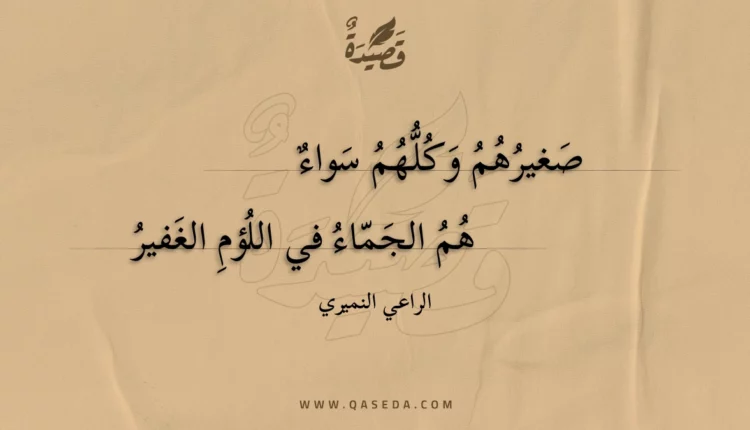 قَصِيدَةٌ
صَغيرُهُمُ وَكُلُّهُمُ سَواءٌ
هُمُ الجَمّاءُ في اللُؤمِ الغَفيرُ
الراعي النميري
WWW.QASEDA.COM